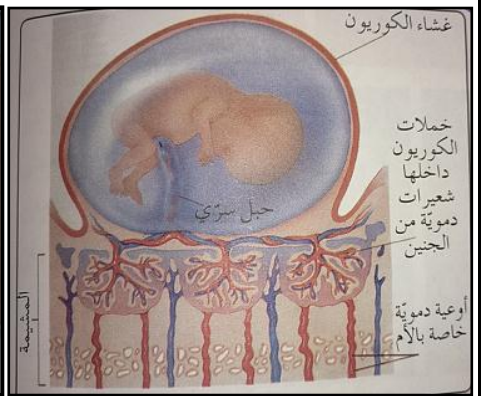 غشاء الكوريون
خملات
الكوريون
داخلها
شعيرات
دمويّة من
الجنين
حبل سرّي
أوعية دمويّة
خاصة بالأم
المشيمة